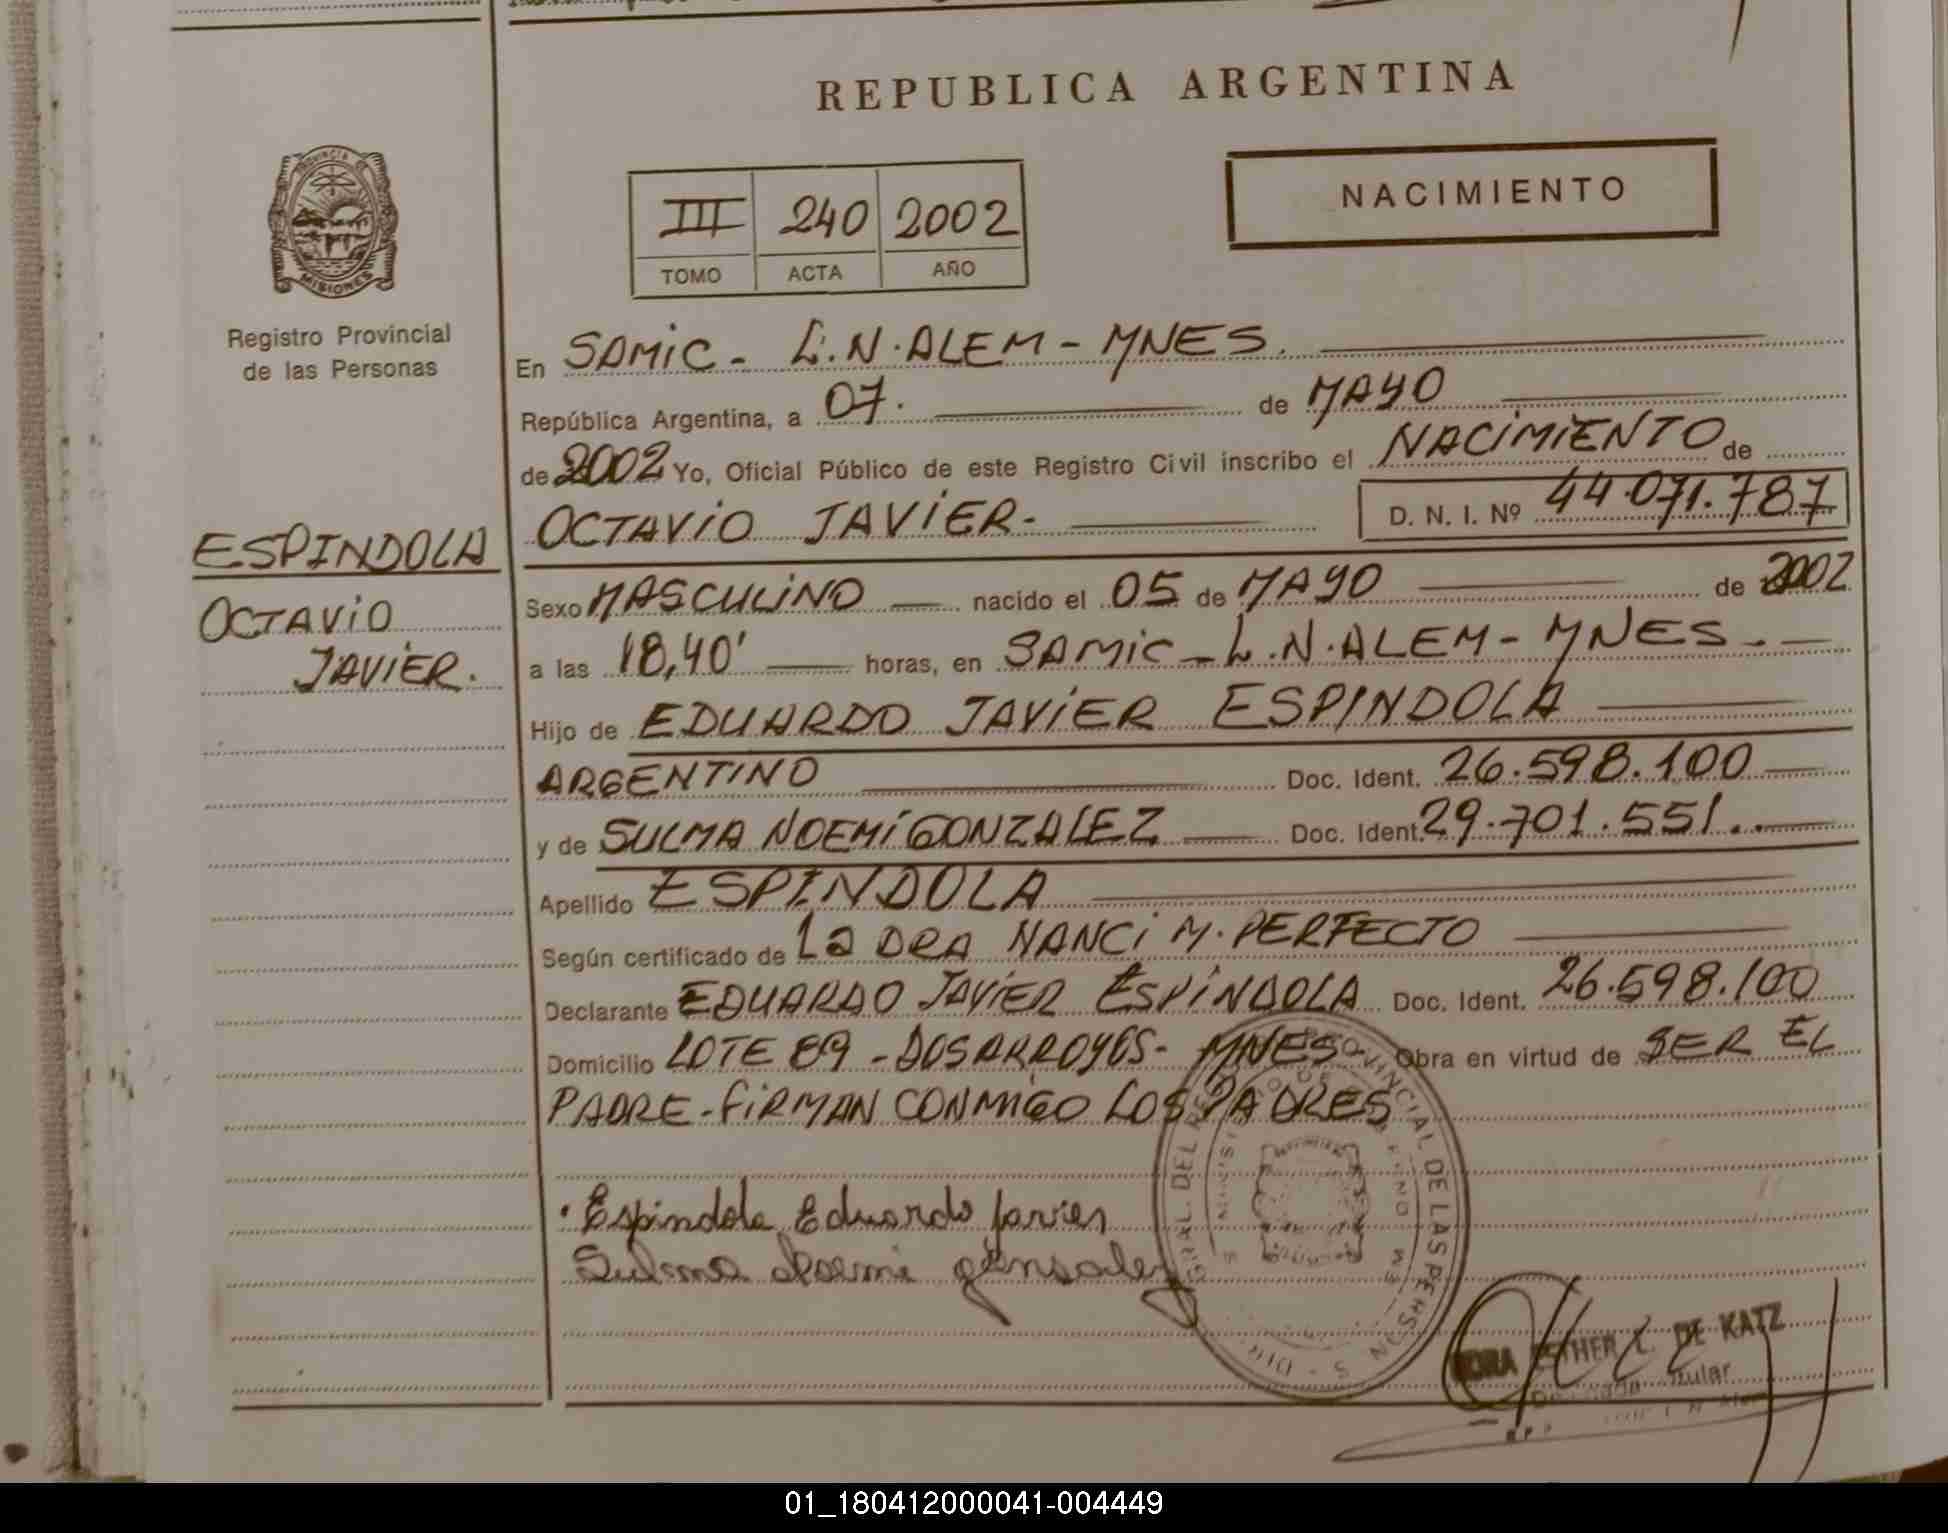 REPUBLICA ARGENTINA
NACIMIENTO
III 240 2002
TOMO ACTA AÑO
PROVINCIA DE
MISIONES
Registro Provincial
de las Personas
ESPINDOLA
OCTAVIO
JAVIER.
En SAMIC - L.N. ALEM - MNES.
República Argentina, a 07. de MAYO
de 2002 Yo, Oficial Público de este Registro Civil inscribo el NACIMIENTO de
OCTAVIO JAVIER - D. N. I. Nº 44.071.787
Sexo MASCULINO nacido el 05 de MAYO de 2002
a las 18,40' horas, en SAMIC - L.N. ALEM - MNES -
Hijo de EDUARDO JAVIER ESPINDOLA
ARGENTINO Doc. Ident. 26.598.100
y de SULMA NOEMI GONZALEZ Doc. Ident. 29.701.551.
Apellido ESPINDOLA
Según certificado de La DRA NANCI M. PERFECTO
Declarante EDUARDO JAVIER ESPINDOLA Doc. Ident. 26.598.100
Domicilio LOTE 89 - DOS ARROYOS - MNES - Obra en virtud de SER EL
PADRE - FIRMAN CONMIGO LOS PADRES
Espindola Eduardo Javier
Sulma Noemi gonsalez
PROVINCIAL DE LAS PERSONAS
ESTHER L. DE KATZ
Titular
01_180412000041-004449